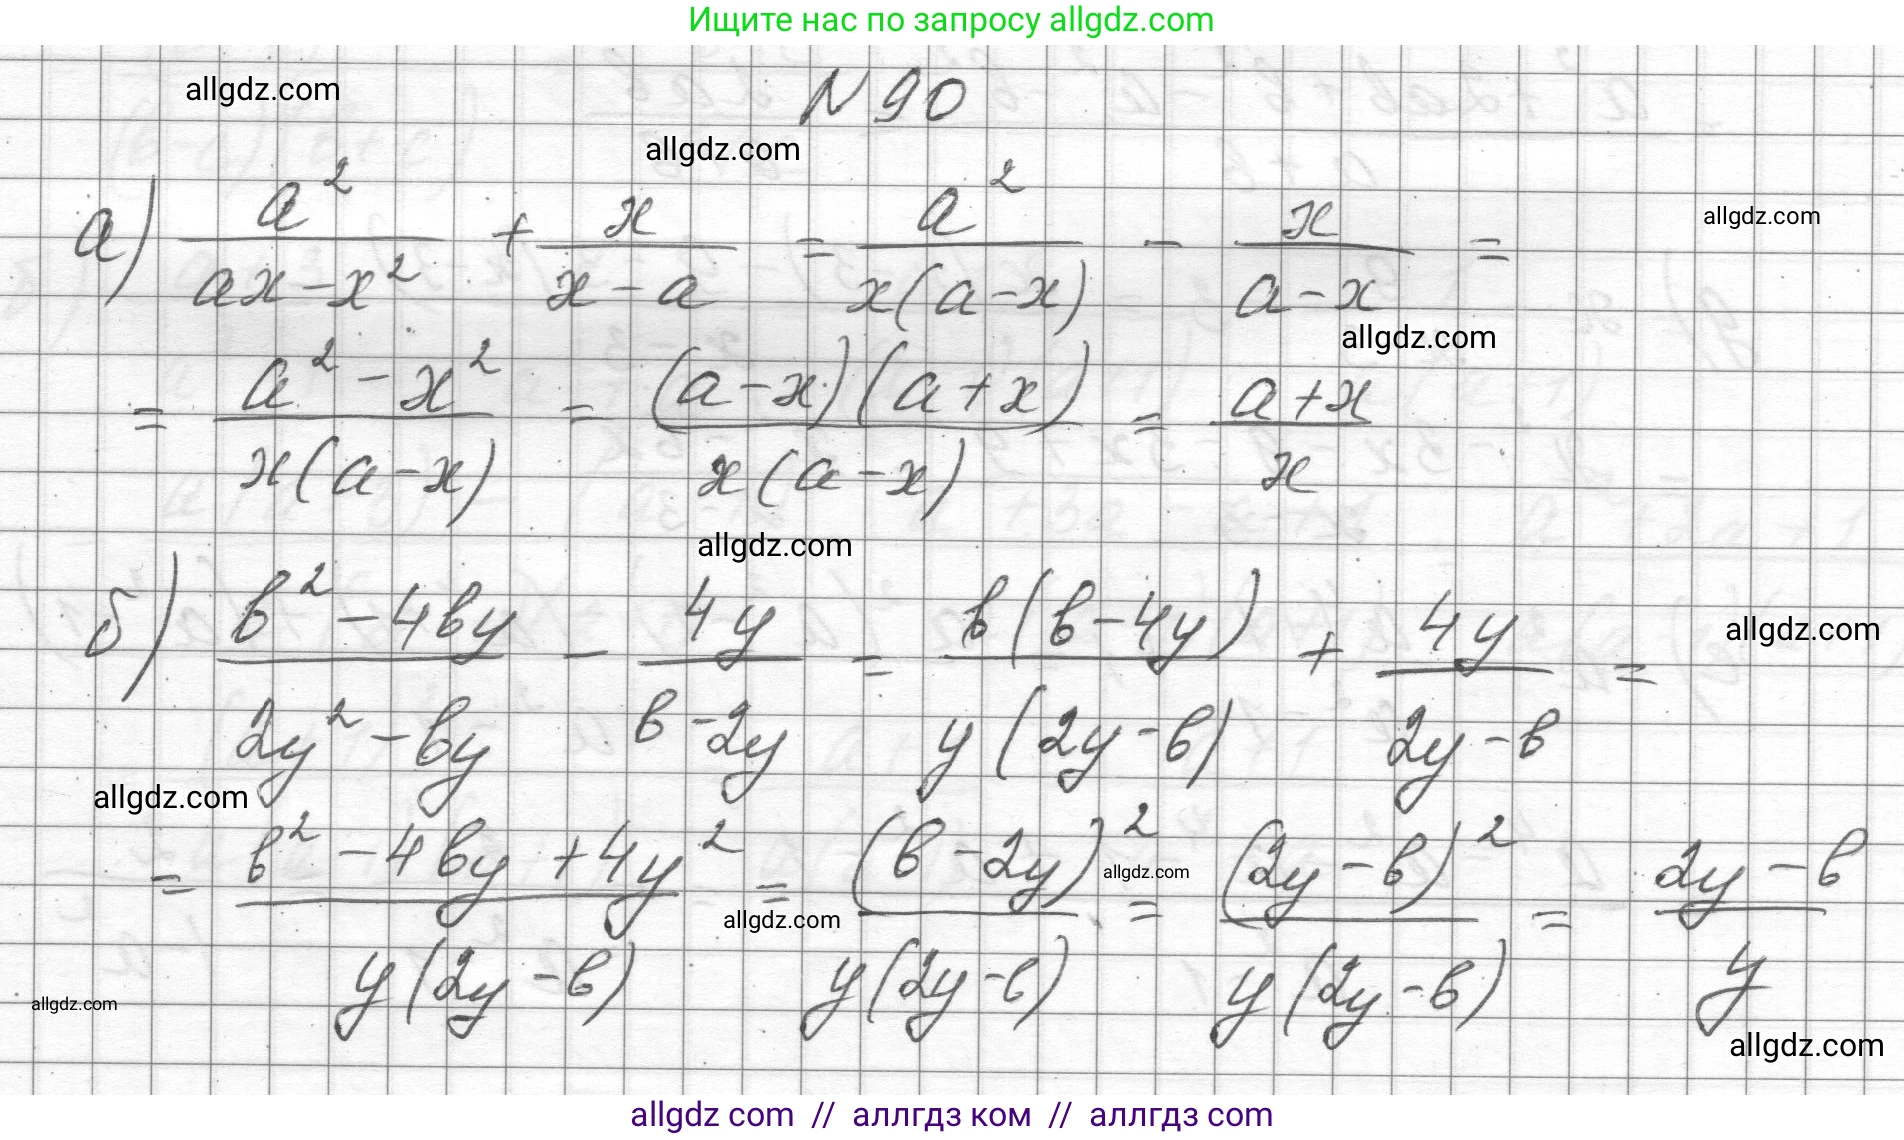 Ищите нас по запросу allgdz.com
allgdz.com
N 90
allgdz.com
а) a²/(ax-x²) + x/(x-a) = a²/(x(a-x)) - x/(a-x) =
allgdz.com
allgdz.com
= (a²-x²)/(x(a-x)) = ((a-x)(a+x))/(x(a-x)) = (a+x)/x
allgdz.com
б) (b²-4by)/(2y²-by) - 4y/(b-2y) = (b(b-4y))/(y(2y-b)) + 4y/(2y-b) =
allgdz.com
allgdz.com
= (b²-4by+4y²)/(y(2y-b)) = (b-2y)²/(y(2y-b)) = (2y-b)²/(y(2y-b)) = (2y-b)/y
allgdz.com
allgdz.com
allgdz.com
allgdz.com
allgdz com // аллгдз ком // аллгдз com